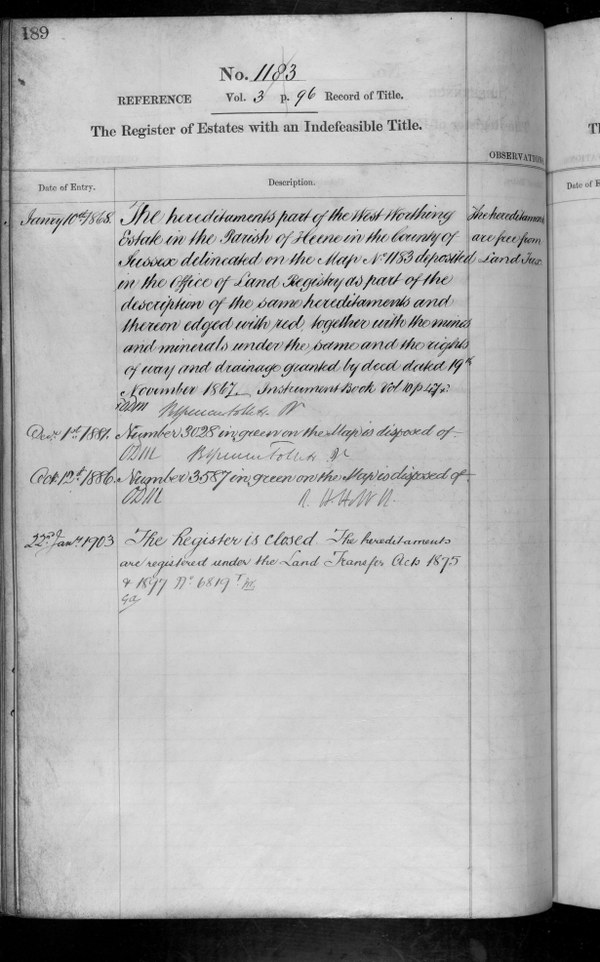 189
No. 1183
REFERENCE Vol. 3 p. 96 Record of Title.
The Register of Estates with an Indefeasible Title.
OBSERVATIONS
Date of Entry.
Description.
Janry 10th 1868.
The hereditaments part of the West Worthing
Estate in the Parish of Heene in the County of
Sussex delineated on the Map No. 1183 deposited
in the Office of Land Registry as part of the
description of the same hereditaments and
thereon edged with red, together with the mines
and minerals under the same and the rights
of way and drainage granted by deed dated 19th
November 1867. Instrument Book Vol 10 p.
The hereditaments
are free from
Land Tax.
Decr. 1st. 1881. Number 3028 in green on the Map is disposed of
ODM
Octr. 12th. 1886. Number 3587 in green on the Map is disposed of
ODM
22nd Jany. 1903 The Register is closed. The hereditaments
are registered under the Land Transfer Acts 1875
& 1897 No. 6819
Date of E